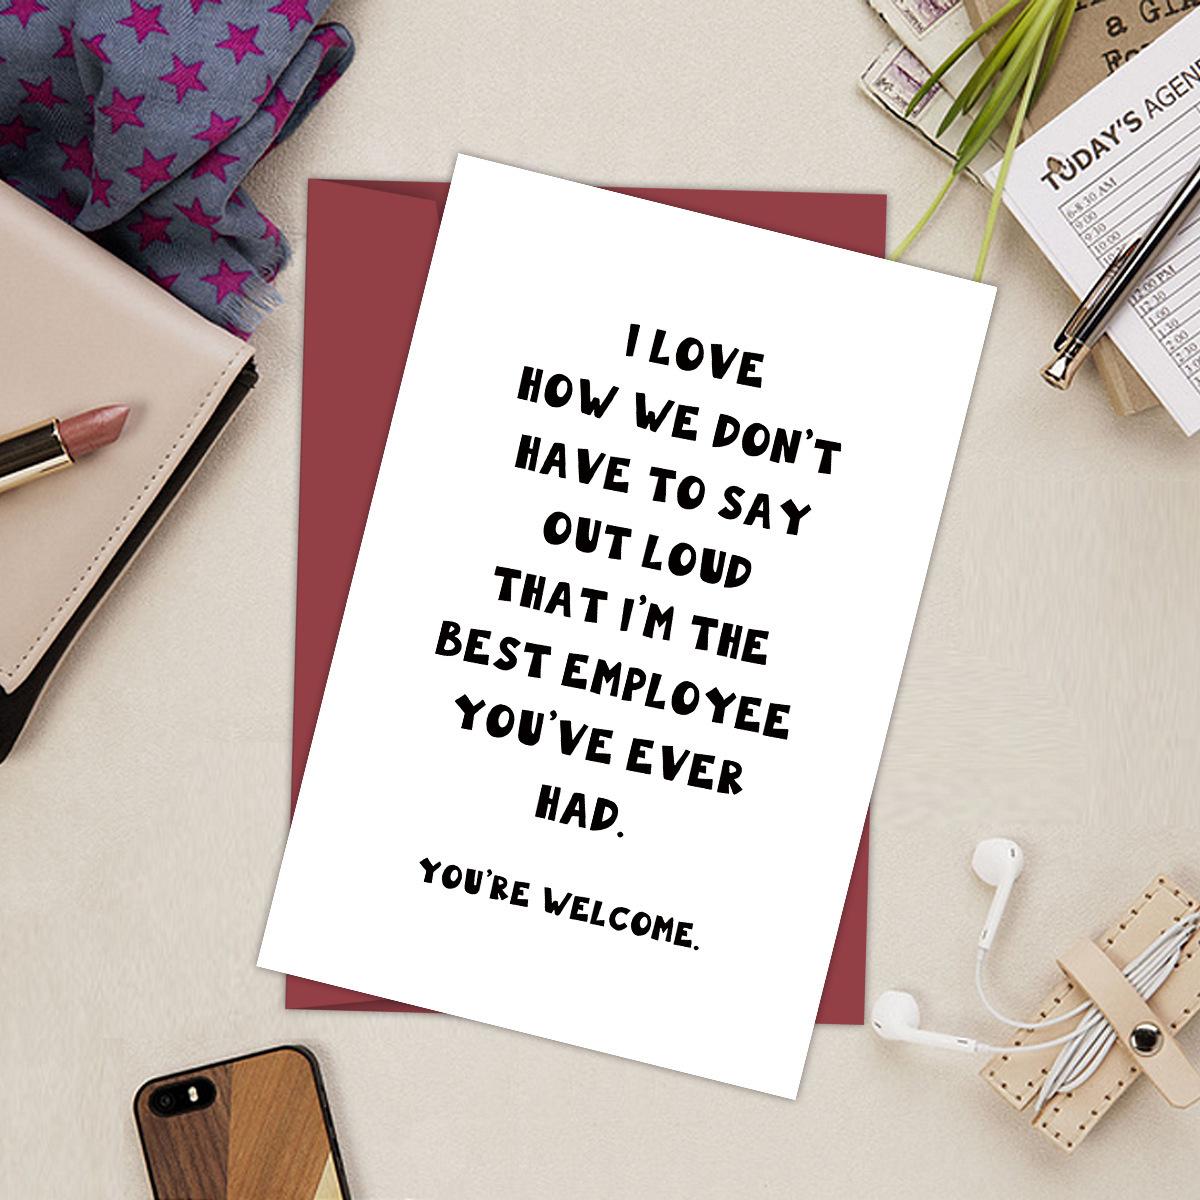 I LOVE
HOW WE DON'T
HAVE TO SAY
OUT LOUD
THAT I'M THE
BEST EMPLOYEE
YOU'VE EVER
HAD.
YOU'RE WELCOME.
a
TODAY'S
6-8:30 AM
9:00
9:30
10:00
12:00 PM
12:30
1:00
1:30
2:00
2:30